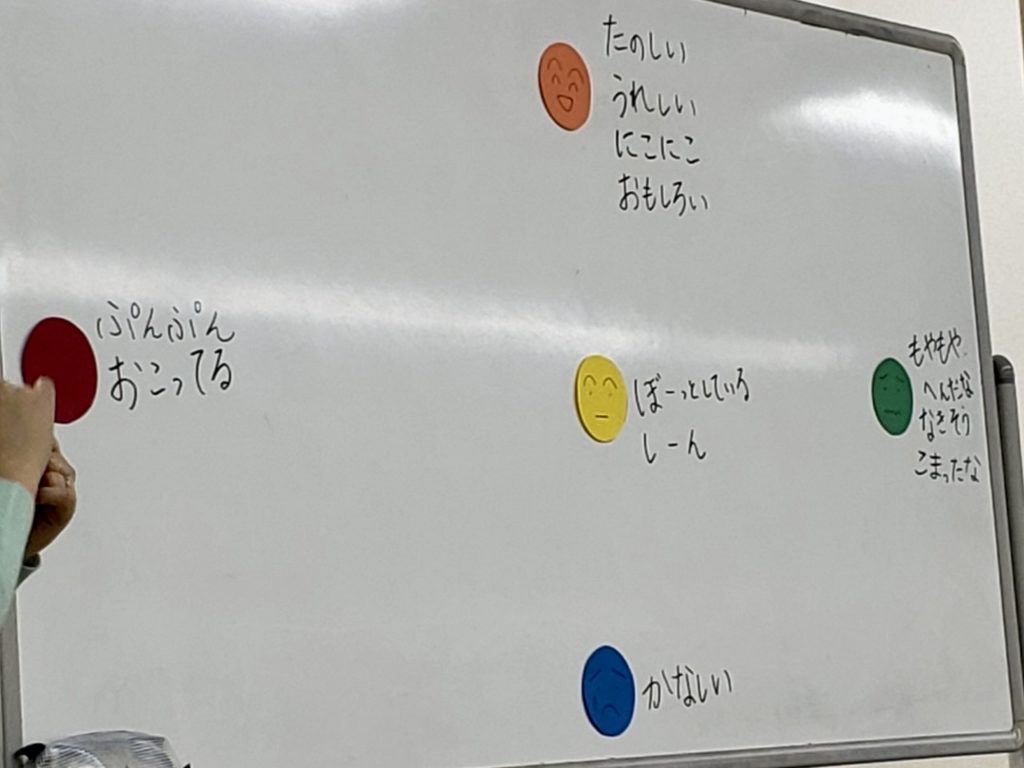 たのしい
うれしい
にこにこ
おもしろい
ぷんぷん
おこってる
ぼーっとしている
しーん
もやもや
へんだな
なきそう
こまったな
かなしい